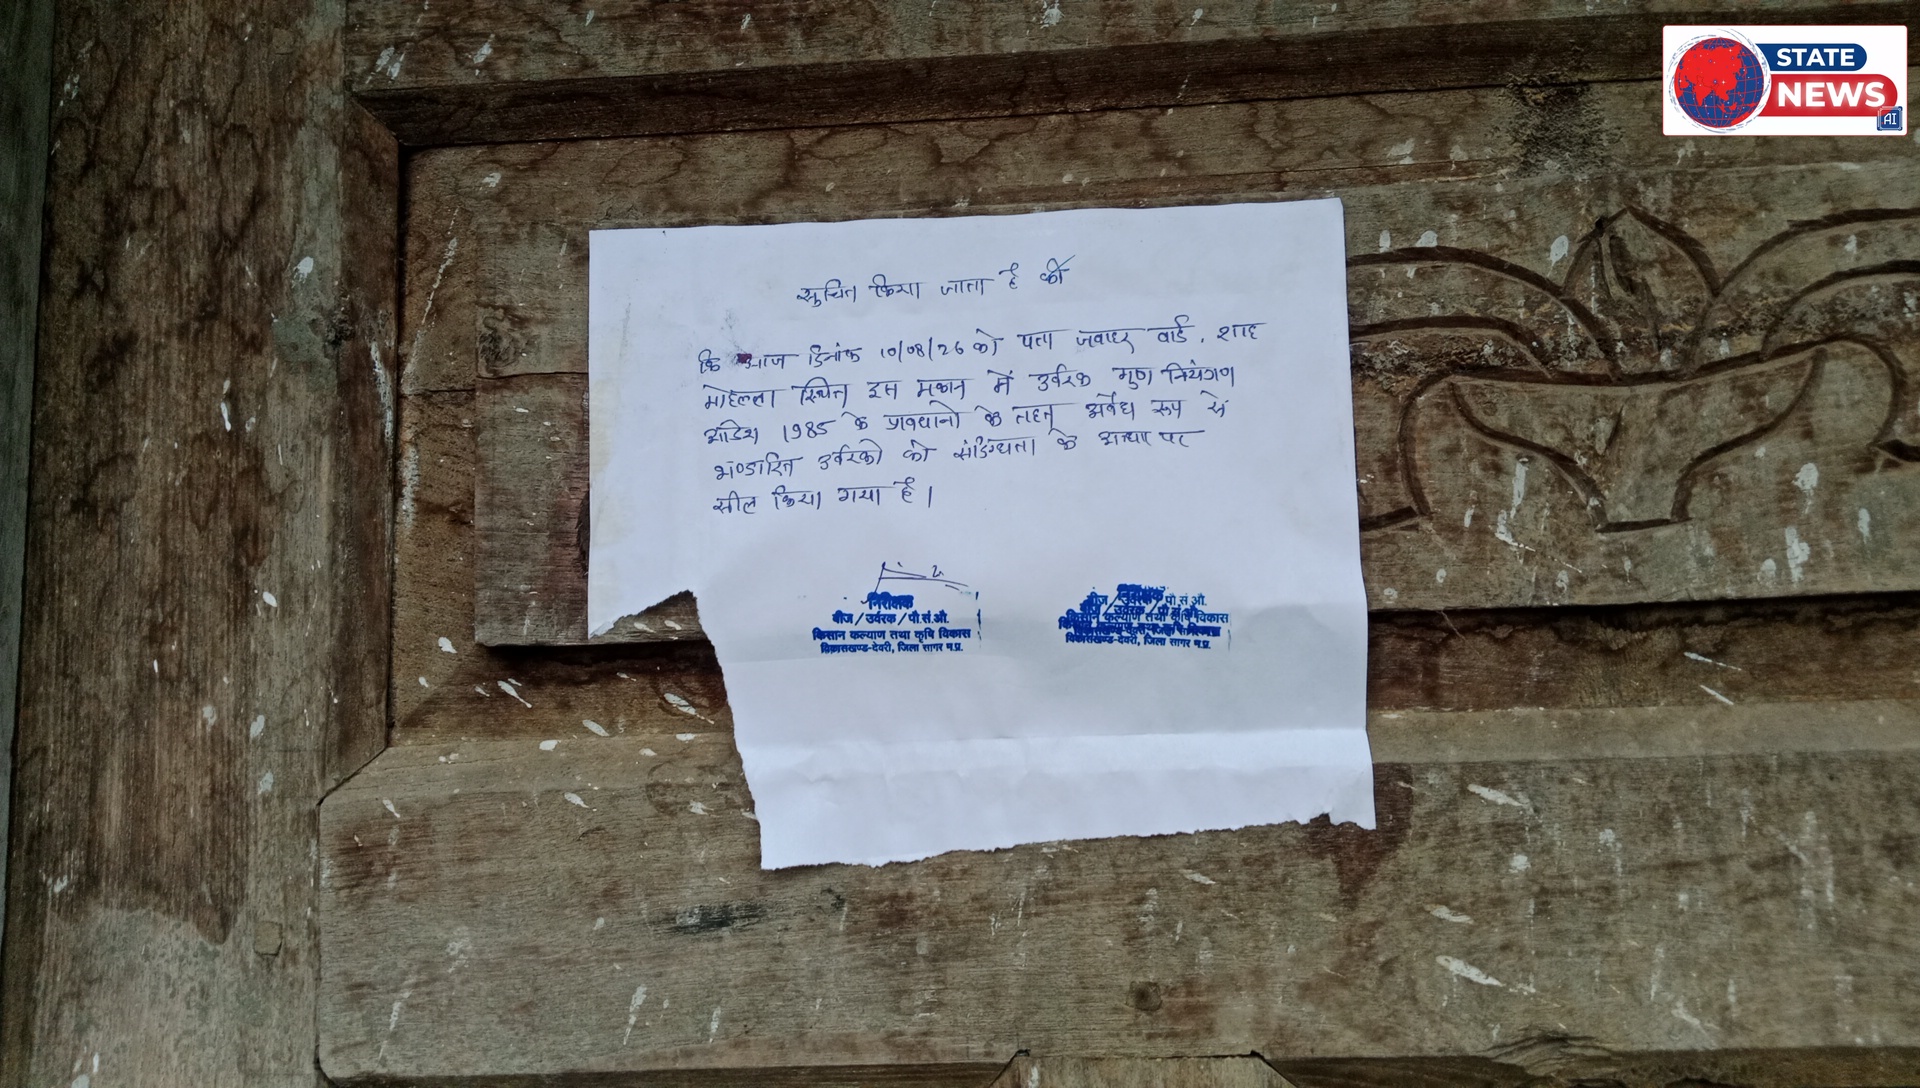 STATE
NEWS
AI
सुचित किया जाता है की
कि आज दिनांक 10/08/26 को पता जवाहर वार्ड, शाह
मोहल्ला स्थित इस मकान में उर्वरक गुण नियंत्रण
आदेश 1985 के प्रावधानो के तहत अवैध रूप से
भण्डारित उर्वरको को संदिग्धता के आधार पर
सील किया गया है।
निरीक्षक
बीज / उर्वरक / पौ.सं.औ.
किसान कल्याण तथा कृषि विकास
विकासखण्ड-देवरी, जिला सागर म.प्र.
निरीक्षक
बीज / उर्वरक / पौ.सं.औ.
किसान कल्याण तथा कृषि विकास
विकासखण्ड-देवरी, जिला सागर म.प्र.